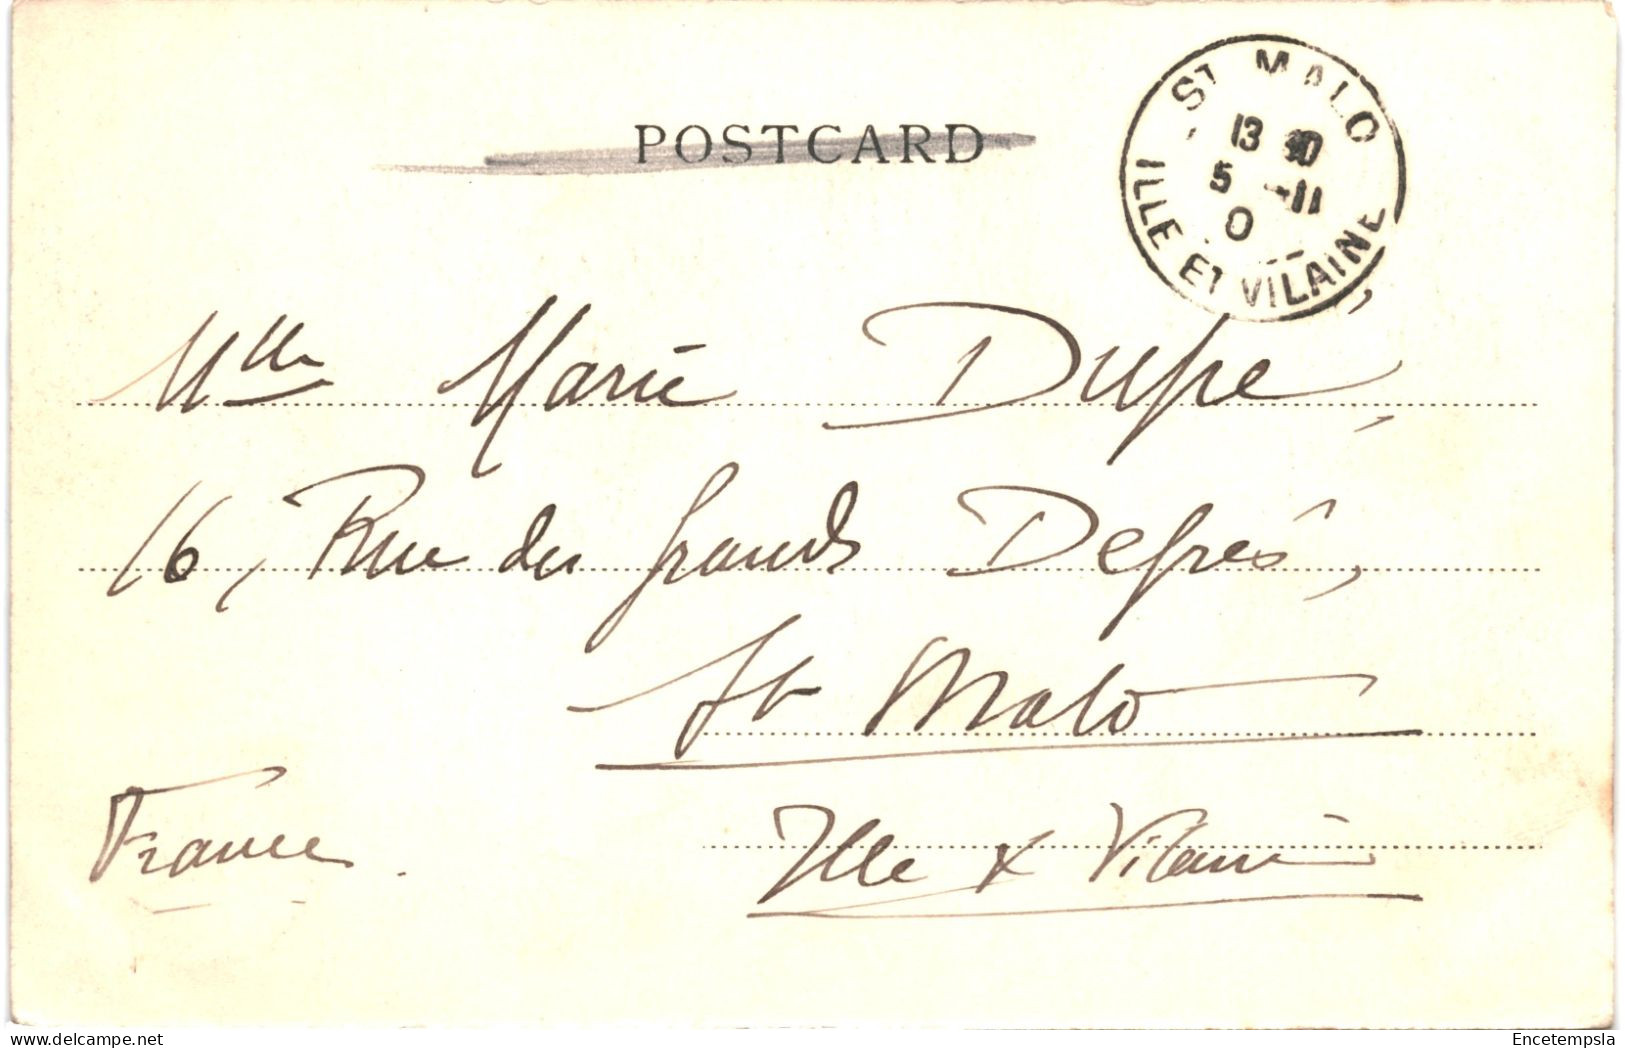 POSTCARD
ST MALO
13 30
5 -11
0
ILLE ET VILAINE
Mlle Marie Dupé,
16, Rue des Grands Degrés,
St Malo
Ille & Vilaine
France.
Encetempsla